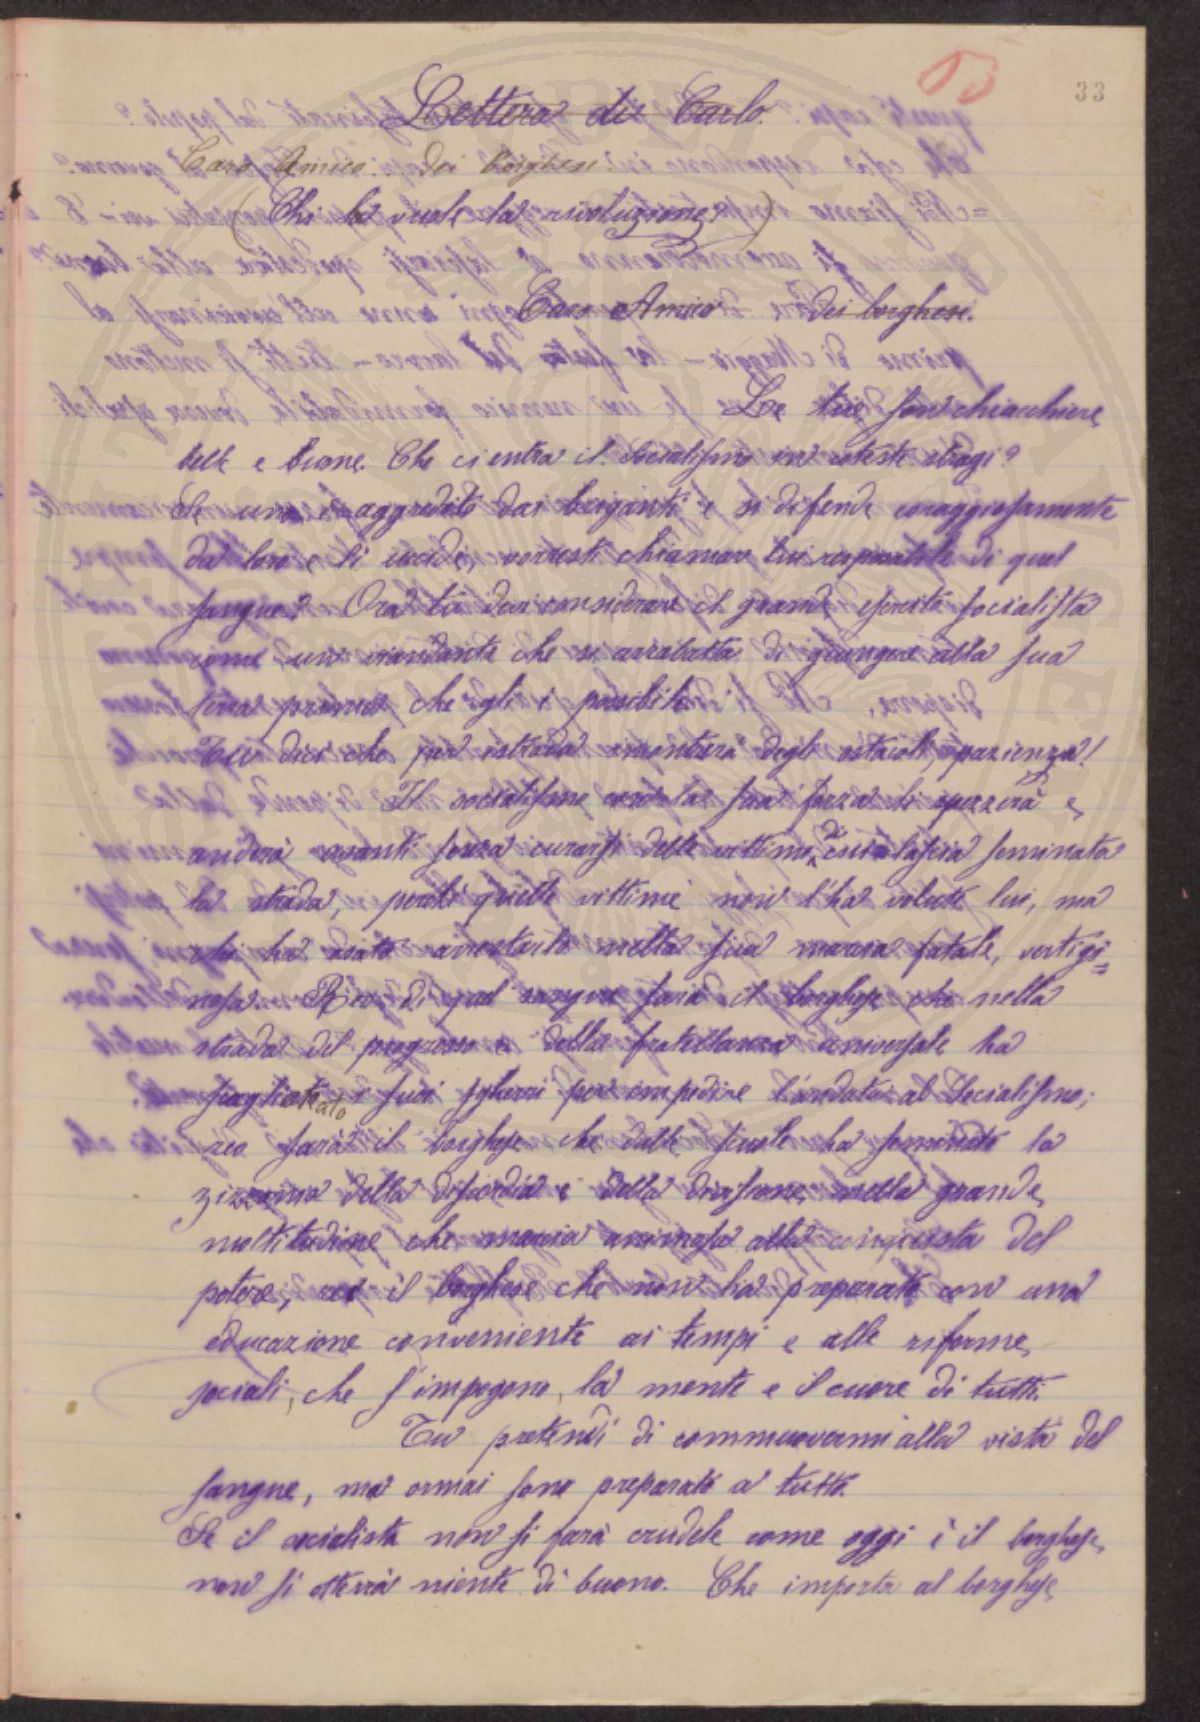 33
Lettera di Carlo.
Caro Amico dei Borghesi
(Chi la vuole la rivoluzione?)
Caro Amico dei borghesi.
Le tue son chiacchiere
belle e buone. Che ci entra il socialismo in coteste stragi?
Se uno è aggredito dai briganti e si difende coraggiosamente
da loro e li uccide, vorresti chiamar lui responsabile di quel
sangue? Ora tu devi considerare il grande esercito socialista
come un viandante che si arrabatta di giungere alla sua
terra prima che gli è possibile.
Tu dici che per istrada incontrerà degli ostacoli, pazienza!
Il socialismo con la sua forza li spezzerà e
andrà avanti senza curarsi delle vittime di cui lascia seminata
la strada, perché quelle vittime non l'ha volute lui, ma
chi ha osato arrestarlo nella sua marcia fatale, vertigi=
nosa. Reo di quel sangue sarà il borghese che nella
strada del progresso e della fratellanza universale ha
sguinzagliato i suoi sgherri per impedire l'andata al Socialismo;
reo sarà il borghese che dalle scuole ha seminato la
zizzania della discordia e della divisione nella grande
moltitudine che marcia animosa alla conquista del
potere, reo il borghese che non ha preparato con una
educazione conveniente ai tempi e alle riforme
sociali, che s'impogono, la mente e il cuore di tutti.
Tu pretendi di commuovermi alla vista del
sangue, ma ormai sono preparato a tutto.
Se il socialista non si farà crudele come oggi è il borghese,
non si otterrà niente di buono. Che importa al borghese